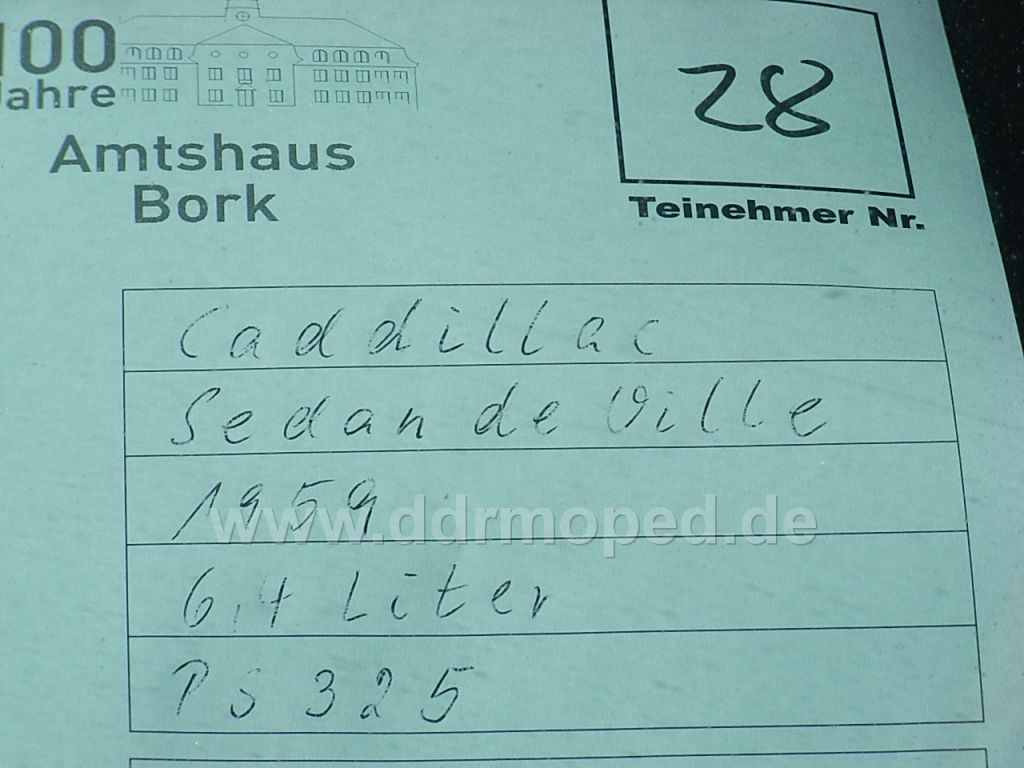 100
Jahre
Amtshaus
Bork
28
Teinehmer Nr.
Caddillac
Sedan de Ville
1959
www.ddrmoped.de
6,4 Liter
PS 325